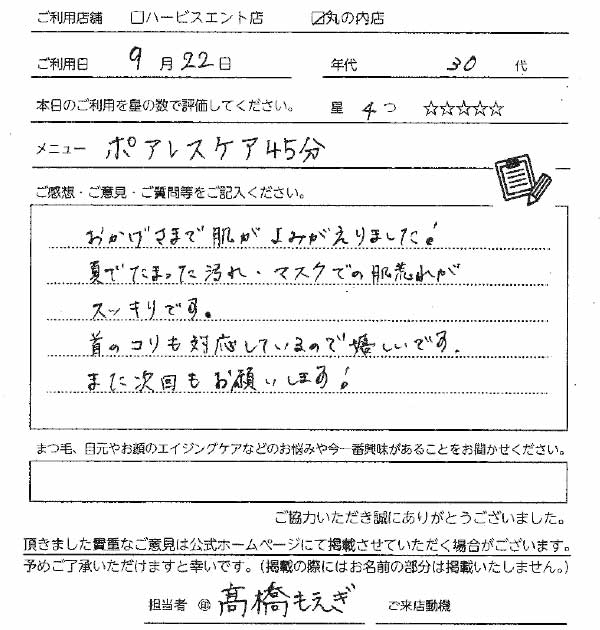 ご利用店舗 □ハービスエント店 ☑丸の内店
ご利用日 9月22日 年代 30代
本日のご利用を星の数で評価してください。 星 4つ ☆☆☆☆☆
メニュー ポアレスケア45分
ご感想・ご意見・ご質問等をご記入ください。
おかげさまで肌がよみがえりました!
夏でたまった汚れ・マスクでの肌荒れが
スッキリです。
首のコリも対応しているので嬉しいです。
また次回もお願いします!
まつ毛、目元やお顔のエイジングケアなどのお悩みや今一番興味があることをお聞かせください。
ご協力いただき誠にありがとうございました。
頂きました貴重なご意見は公式ホームページにて掲載させていただく場合がございます。
予めご了承いただけますと幸いです。(掲載の際にはお名前の部分は掲載いたしません。)
担当者 ㊞ 髙橋もえぎ ご来店動機